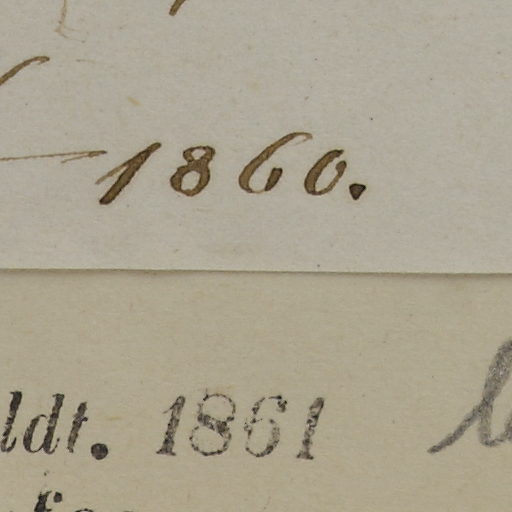 1860.
ldt. 1861